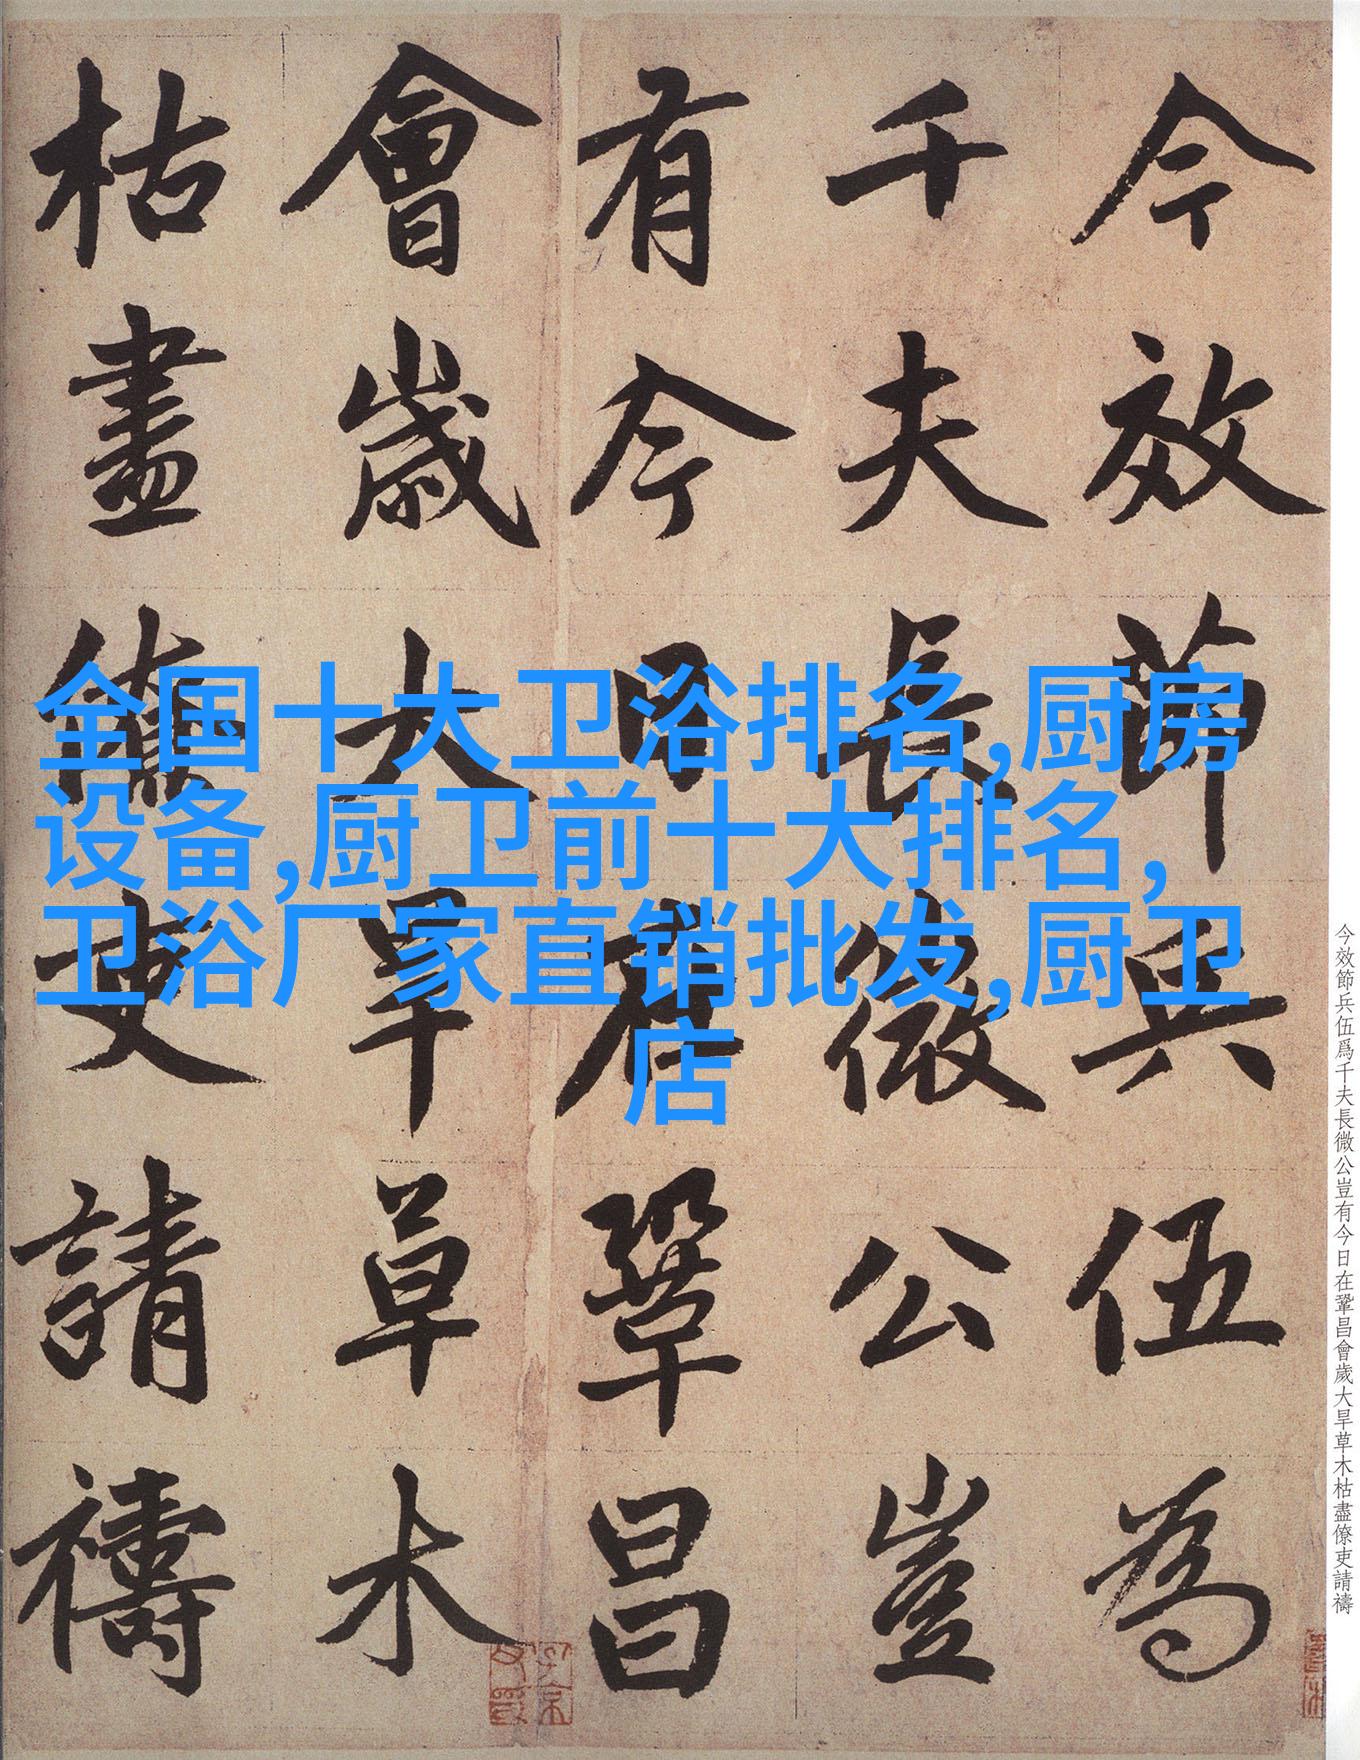 今效節兵伍為
千夫長微公豈
有今日在鞏昌
會歲大旱草木
枯盡僚吏請禱
全国十大卫浴排名,厨房
设备,厨卫前十大排名,
卫浴厂家直销批发,厨卫
店
今效節兵伍爲千夫長微公豈有今日在鞏昌會歲大旱草木枯盡僚吏請禱